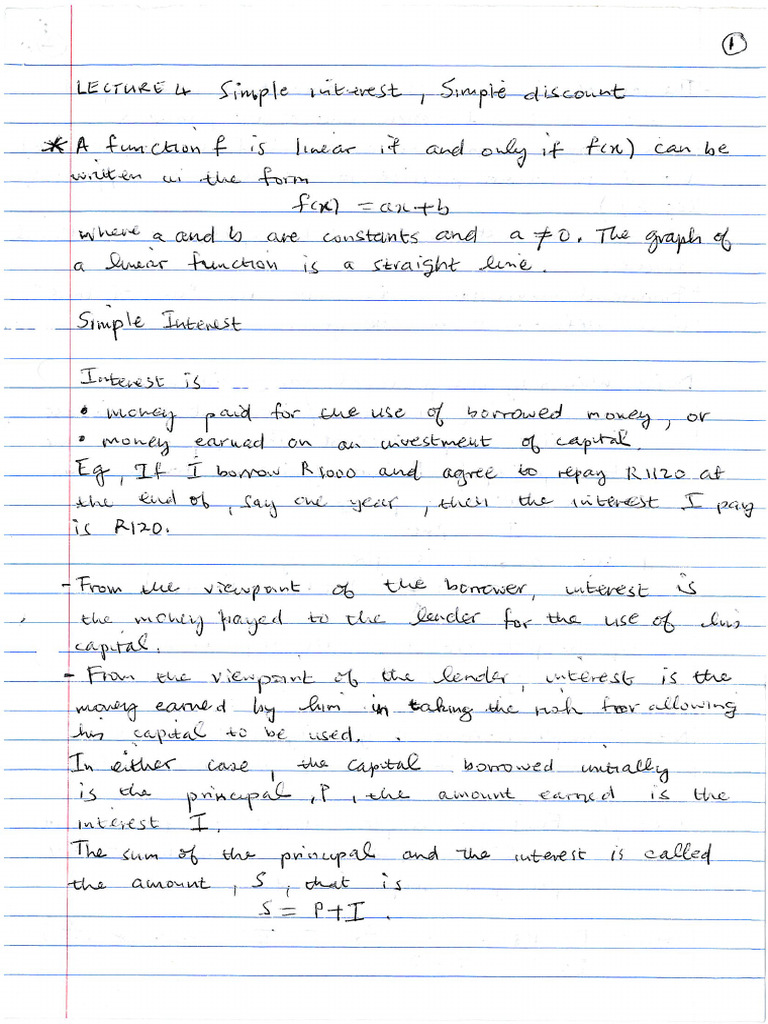 1
LECTURE 4 Simple interest, Simple discount
* A function f is linear if and only if f(x) can be
written in the form
f(x) = ax+b
where a and b are constants and a ≠ 0. The graph of
a linear function is a straight line.
Simple Interest
Interest is
• money paid for the use of borrowed money, or
• money earned on an investment of capital.
Eg, If I borrow R1000 and agree to repay R1120 at
the end of, say one year, then the interest I pay
is R120.
- From the viewpoint of the borrower, interest is
the money payed to the lender for the use of his
capital.
- From the viewpoint of the lender, interest is the
money earned by him in taking the risk for allowing
his capital to be used.
In either case, the capital borrowed initially
is the principal, P, the amount earned is the
interest I.
The sum of the principal and the interest is called
the amount, S, that is
S = P+I.